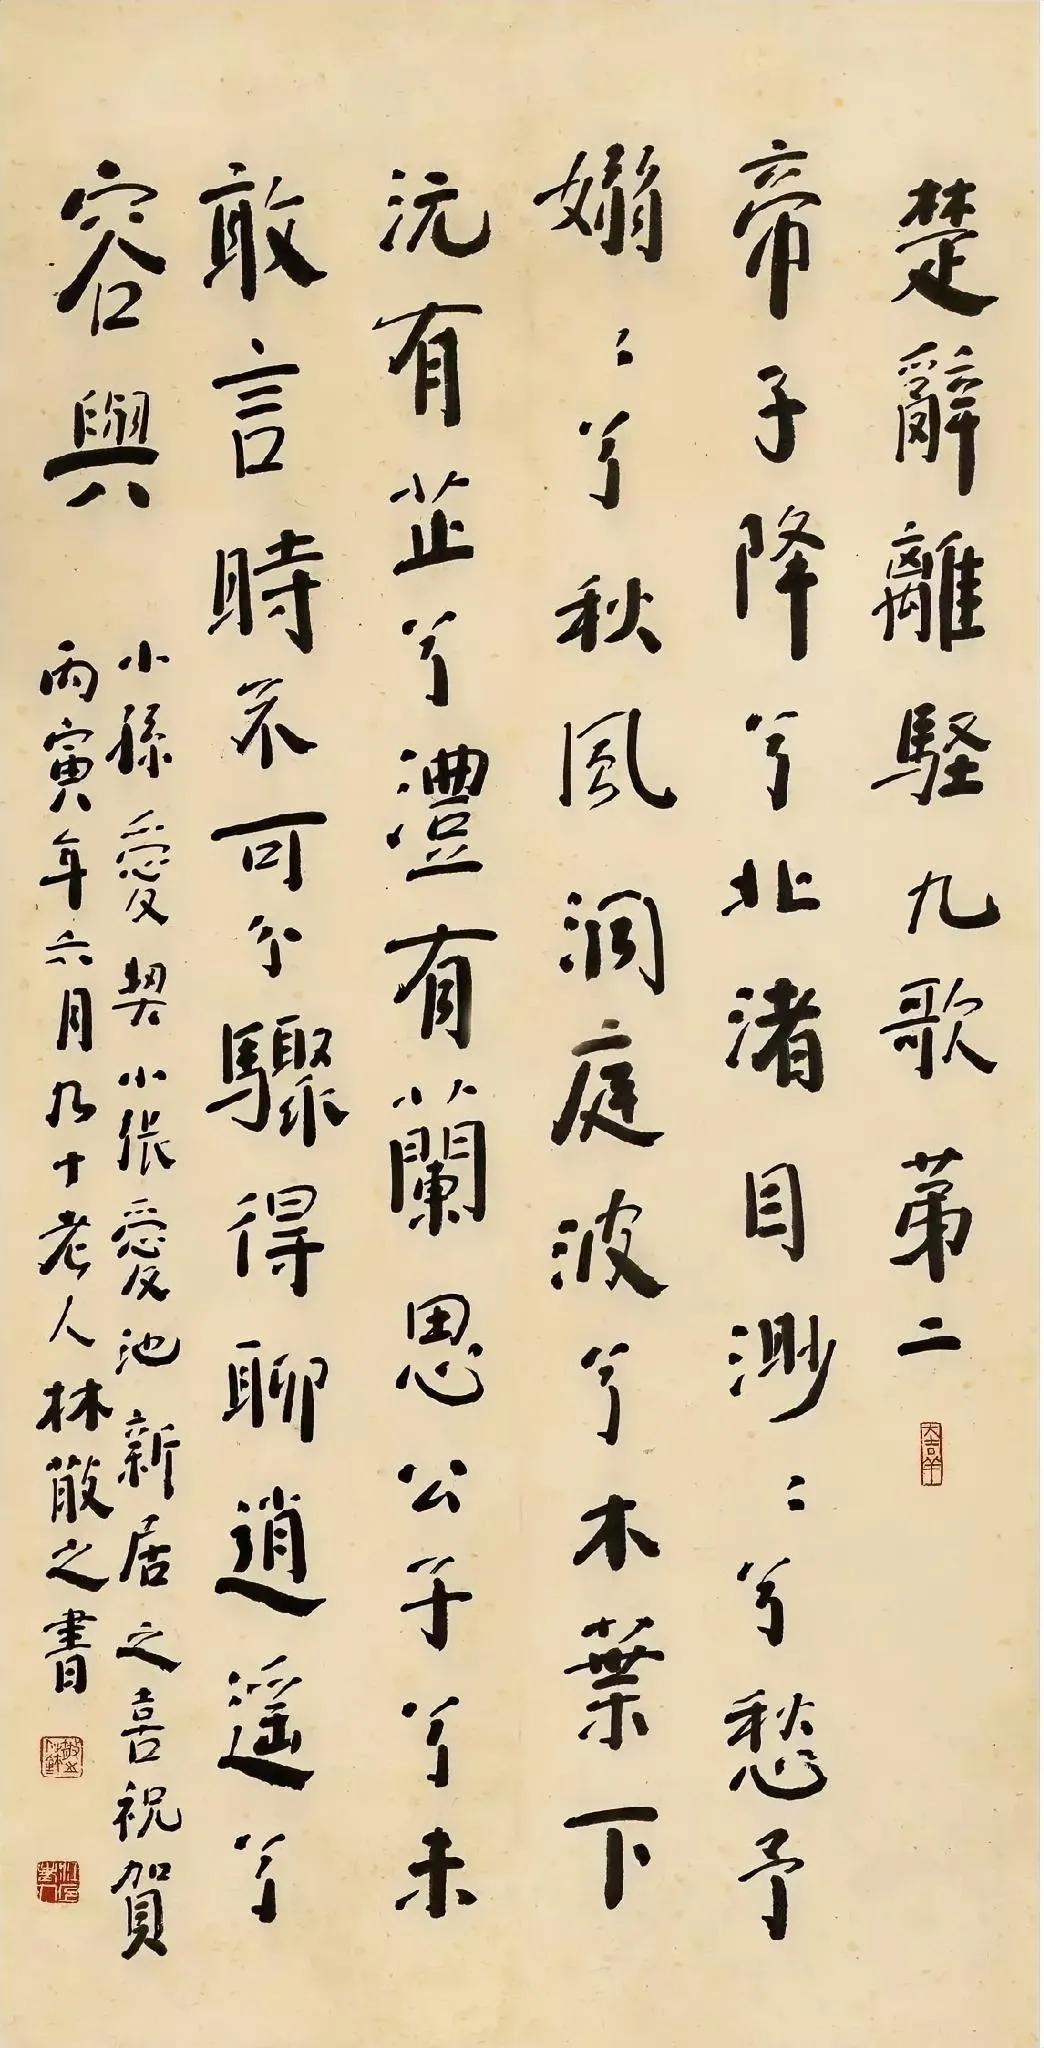 楚辭離騷九歌苐二
大吉羊
帝子降兮北渚目渺〻兮愁予
嫋〻兮秋風洞庭波兮木葉下
沅有芷兮澧有蘭思公子兮未
敢言時不可兮驟得聊逍遥兮
容與
小孫愛契小張愛池新居之喜祝賀
丙寅年六月九十老人林散之書